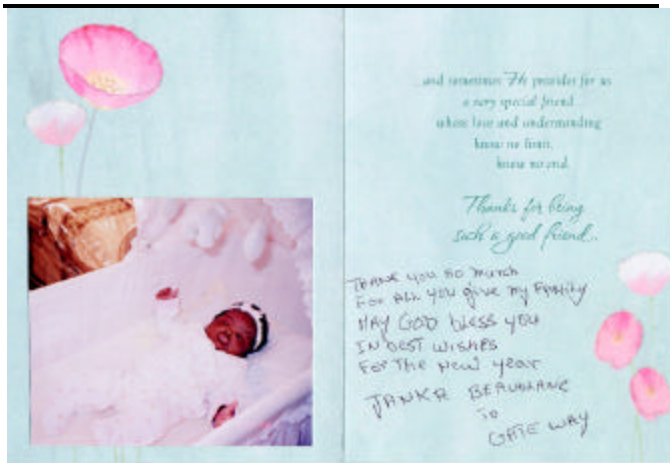 ...and sometimes He provides for us
a very special friend
whose love and understanding
know no limit,
know no end.
Thanks for being
such a good friend...
THANK YOU SO MUCH
FOR ALL YOU give my FAMILY
MAY GOD bless you
IN best WISHES
FOR THE NEW YEAR
TO
GATE WAY